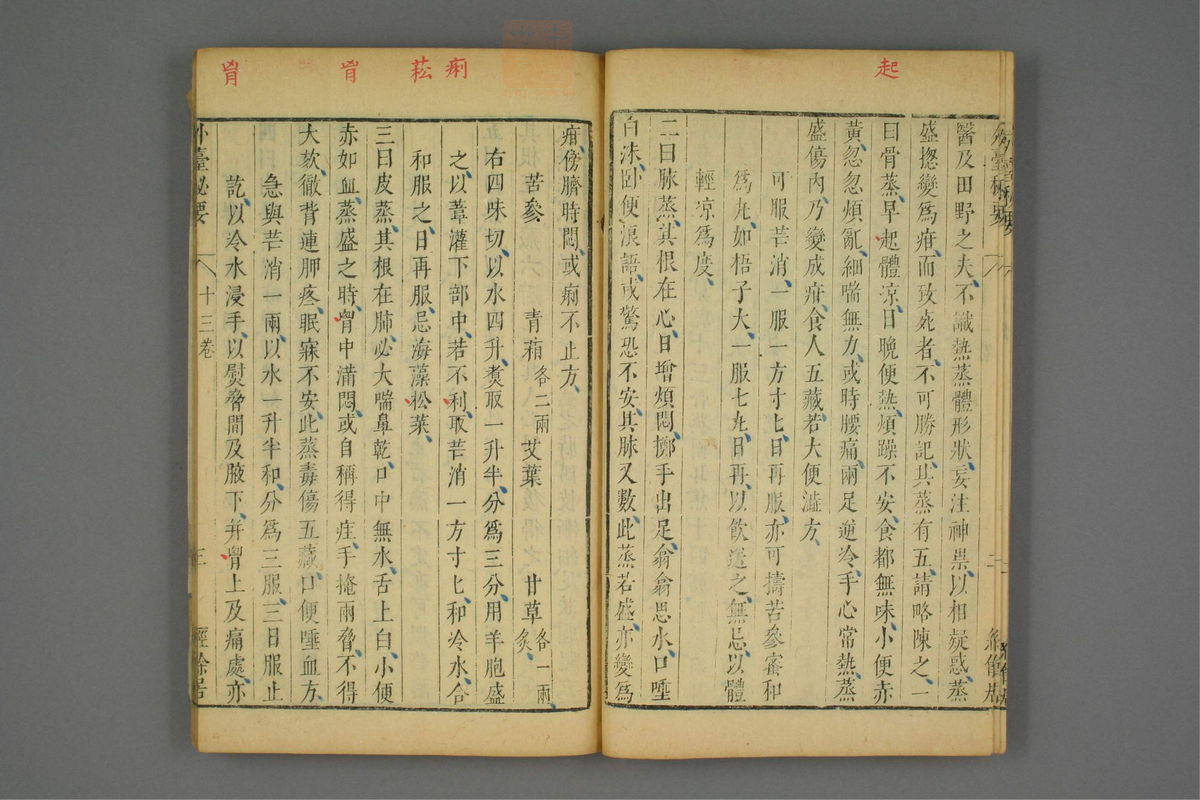 起
醫及田野之夫不識熱蒸體形狀妄注神祟以相疑惑蒸
盛揔變爲疳而致死者不可勝記其蒸有五請略陳之一
曰骨蒸早起體凉日晚便熱煩躁不安食都無味小便赤
黃忽忽煩亂細喘無力或時腰痛兩足逆冷手心常熱蒸
盛傷內乃變成疳食人五藏若大便澁方
可服芒消一服一方寸匕日再服亦可擣苦參蜜和
爲丸如梧子大一服七丸日再以飲送之無忌以體
輕凉爲度
二曰脉蒸其根在心日增煩悶擲手出足翕翕思水口唾
白沫卧便浪語或驚恐不安其脉又數此蒸若盛亦變爲
痢 菘 胷 胷
疳傍臍時悶或痢不止方
苦參 青葙各二兩 艾葉 甘草各一兩炙
右四味切以水四升煑取一升半分爲三分用羊胞盛
之以葦灌下部中若不利取芒消一方寸匕和冷水合
和服之日再服忌海藻松菜
三曰皮蒸其根在肺必大喘鼻乾口中無水舌上白小便
赤如血蒸盛之時胷中滿悶或自稱得疰手掩兩脅不得
大欬徹背連胛疼眠寐不安此蒸毒傷五藏口便唾血方
急與芒消一兩以水一升半和分爲三服三日服止
訖以冷水浸手以熨脅間及腋下并胷上及痛處亦
外臺秘要 十三卷 三 經餘居